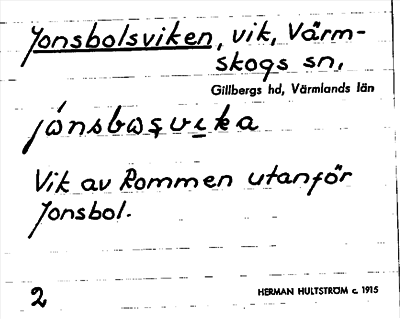 Jonsbolsviken, vik, Värm-
skogs sn,
Gillbergs hd, Värmlands län
jònsbωşvi̲ka
Vik av Rommen utanför
Jonsbol.
2
HERMAN HULTSTRÖM c. 1915